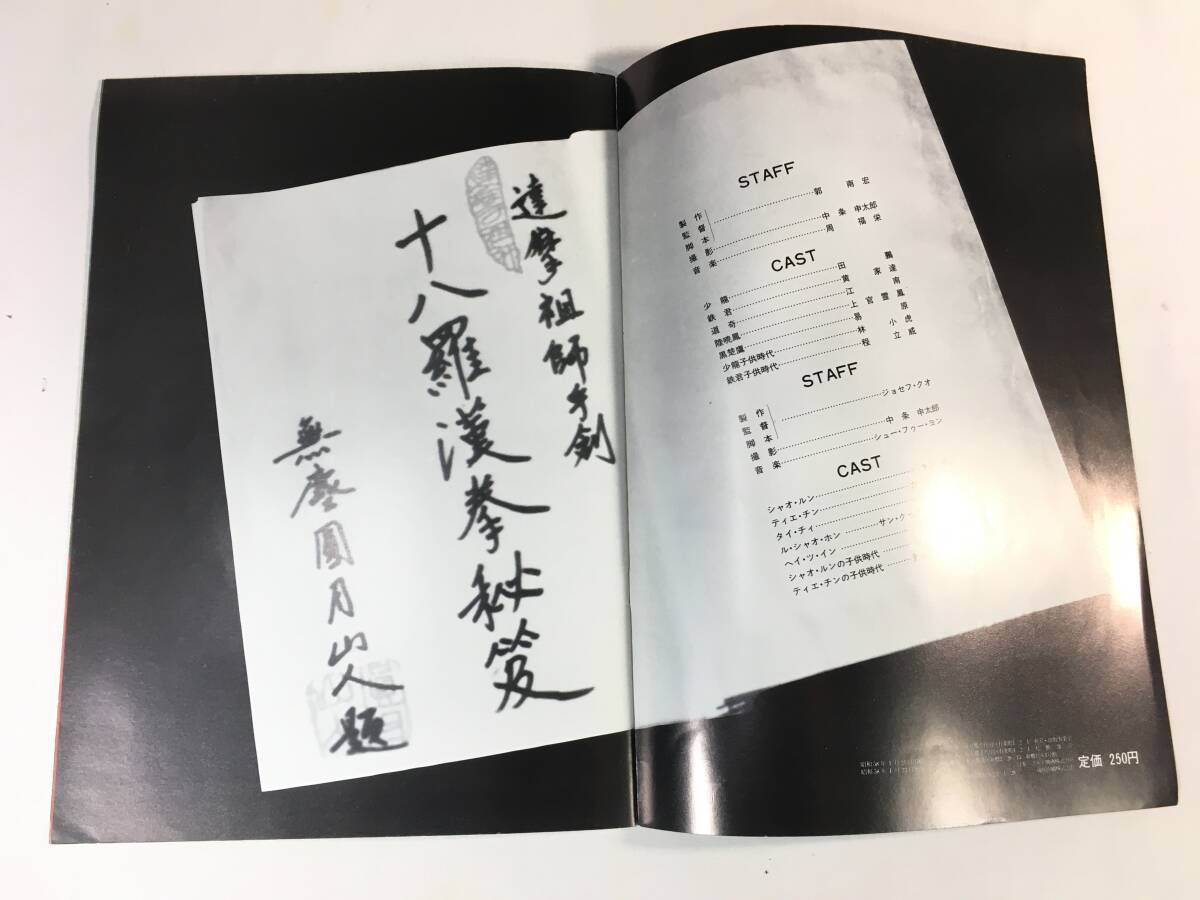 達摩祖師手創
十八羅漢拳秘笈
無塵圓月山人題
STAFF
製作
監督………郭南宏
脚本
撮影………中条申太郎
音楽………周福栄
CAST
少龍………田鵬
鉄君………黄家達
道奇………江南
陸暁鳳………上官霊鳳
黒楚鷹………易原
少龍子供時代………林小虎
鉄君子供時代………程立威
STAFF
製作
監督………ジョセフ・クオ
脚本
撮影………中条申太郎
音楽………シュー・フゥー・ヨン
CAST
シャオ・ルン
ティエ・チン
タイ・チィ
ル・シャオ・ホン………サン・ク
ヘイ・ツ・イン
シャオ・ルンの子供時代
ティエ・チンの子供時代
定価 250円